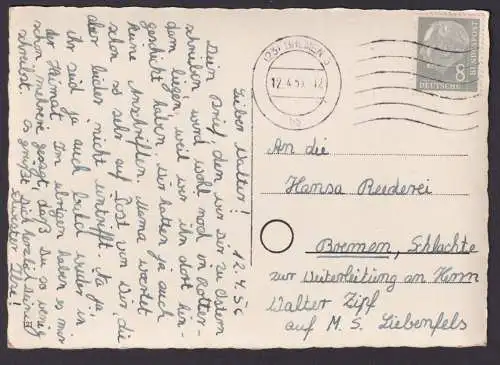 12.4.56
Lieber Walter!
Dein Brief, den wir Dir zu Ostern
schrieben wird wohl noch in Rotter-
dam liegen, weil wir ihn dort hin-
geschickt haben. Wir hatten ja auch
keine Anschriften. Mama wartet
schon so sehr auf Post von Dir, die
aber leider nicht eintrifft. Na ja,
ihr seid ja auch bald wieder in
der Heimat. Im übrigen haben es mir
schon mehrere gesagt, daß Du so wenig
schreibst. Es grüßt Dich herzlich Deine
Schwester
(23) BREMEN 5
12.4.56.12
DEUTSCHE BUNDESPOST
8
An die
Hansa Reederei
Bremen, Schlachte
zur Weiterleitung an Herrn
Walter Zipf
auf M. S. Liebenfels